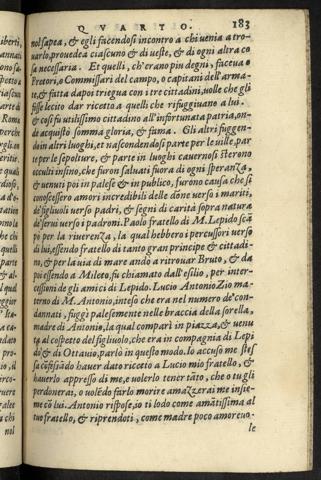 QVARTO. 183
nol sapea, & egli facendosi incontro a chi venia a tro-
uarlo, prouedea ciascuno & di ueste, & di ogni altra co
sa necessaria. Et quelli, ch'erano piu degni, faceua o
Pretori, o Commissari del campo, o capitani dell'arma-
te, & fatta dapoi triegua con i tre cittadini, uolle che gli
fisse lecito dar ricetto a quelli che rifuggiuano a lui.
& cosi fu utilissimo cittadino all'infortunata patria, on-
de acquistò somma gloria, & fama. Gli altri fuggen-
do in altri luoghi, et nascondendosi parte per le uille, par
te per le sepolture, & parte in luoghi cauernosi sterono
occulti insino, che furon saluati fuora di ogni speranza,
& uenuti poi in palese & in publico, furono causa che si
conoscessero amori incredibili delle dõne uerso i mariti,
de' figliuoli verso padri, & segni di carità sopra natura
de' serui uerso i padroni. Paolo fratello di M. Lepido scã
pò per la riuerenza, la qual hebbero i percussori verso
di lui, essendo fratello di tanto gran principe & cittadi-
no, & per la uia di mare andò a ritrouar Bruto, & da
poi essendo a Mileto, fu chiamato dall'esilio, per inter-
cessioni de gli amici di Lepido. Lucio Antonio Zio ma-
terno di M. Antonio, inteso che era nel numero de' con-
dannati, fuggì palesemente nelle braccia della sorella,
madre di Antonio, la qual comparì in piazza, & uenu
ta al cospetto del figliuolo, che era in compagnia di Lepi
do & di Ottauio, parlò in questo modo. Io accuso me stes
sa cõfessãdo hauer dato ricetto a Lucio mio fratello, &
hauerlo appresso di me, e uolerlo tener tãto, che o tu gli
perdoneras, o uolẽdo farlo morire amazzerai me insie-
me cõ lui. Antonio rispose, io ti lodo come amãtissima al
tuo fratello, & riprendoti, come madre poco amoreuo-
le